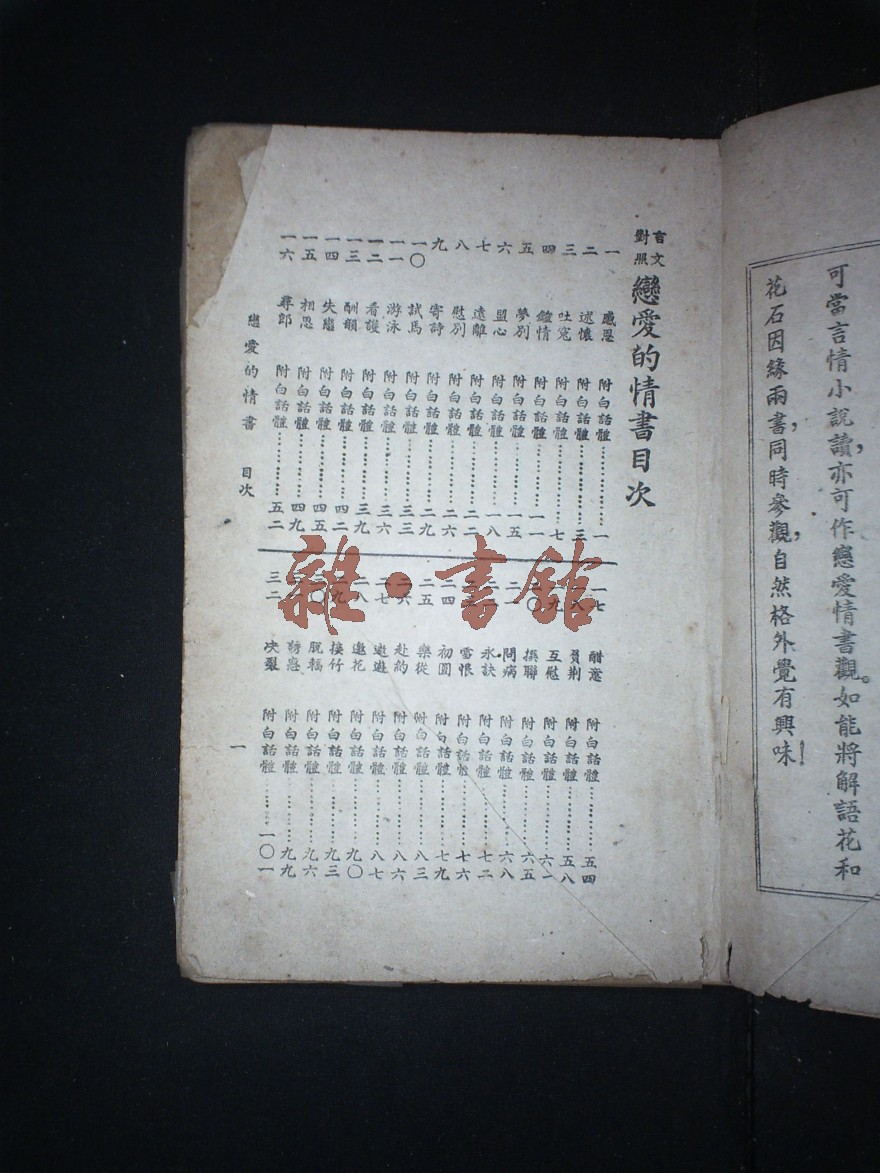 可當言情小説讀，亦可作戀愛情書觀。如能將解語花和
花石因緣兩書，同時參觀，自然格外覺有興味！
言文對照 戀愛的情書目次
一 感恩 附白話體…………一
二 述懷 附白話體…………三
三 吐寃 附白話體…………七
四 鑑情 附白話體…………一一
五 夢別 附白話體…………一五
六 盟心 附白話體…………一八
七 遠離 附白話體…………二二
八 慰別 附白話體…………二六
九 寄詩 附白話體…………二九
一〇 試馬 附白話體…………三三
一一 游泳 附白話體…………三六
一二 看護 附白話體…………三九
一三 酬韻 附白話體…………四二
一四 失戀 附白話體…………四五
一五 相思 附白話體…………四九
一六 尋郎 附白話體…………五二
一七 酣意 附白話體…………五四
八 負荆 附白話體…………五八
九 互慰 附白話體…………六一
〇 撰聯 附白話體…………六五
二一 問病 附白話體…………六八
二二 永訣 附白話體…………七二
雪恨 附白話體…………七六
二四 初圓 附白話體…………七九
二五 樂從 附白話體…………八三
二六 赴約 附白話體…………八六
二七 邀遊 附白話體…………八七
二八 花 附白話體…………九〇
二九 竹 附白話體…………九三
〇 脱輻 附白話體…………九六
誘惑 附白話體…………九九
三二 决裂 附白話體…………一〇一
戀愛的情書 目次
一
雜·書館